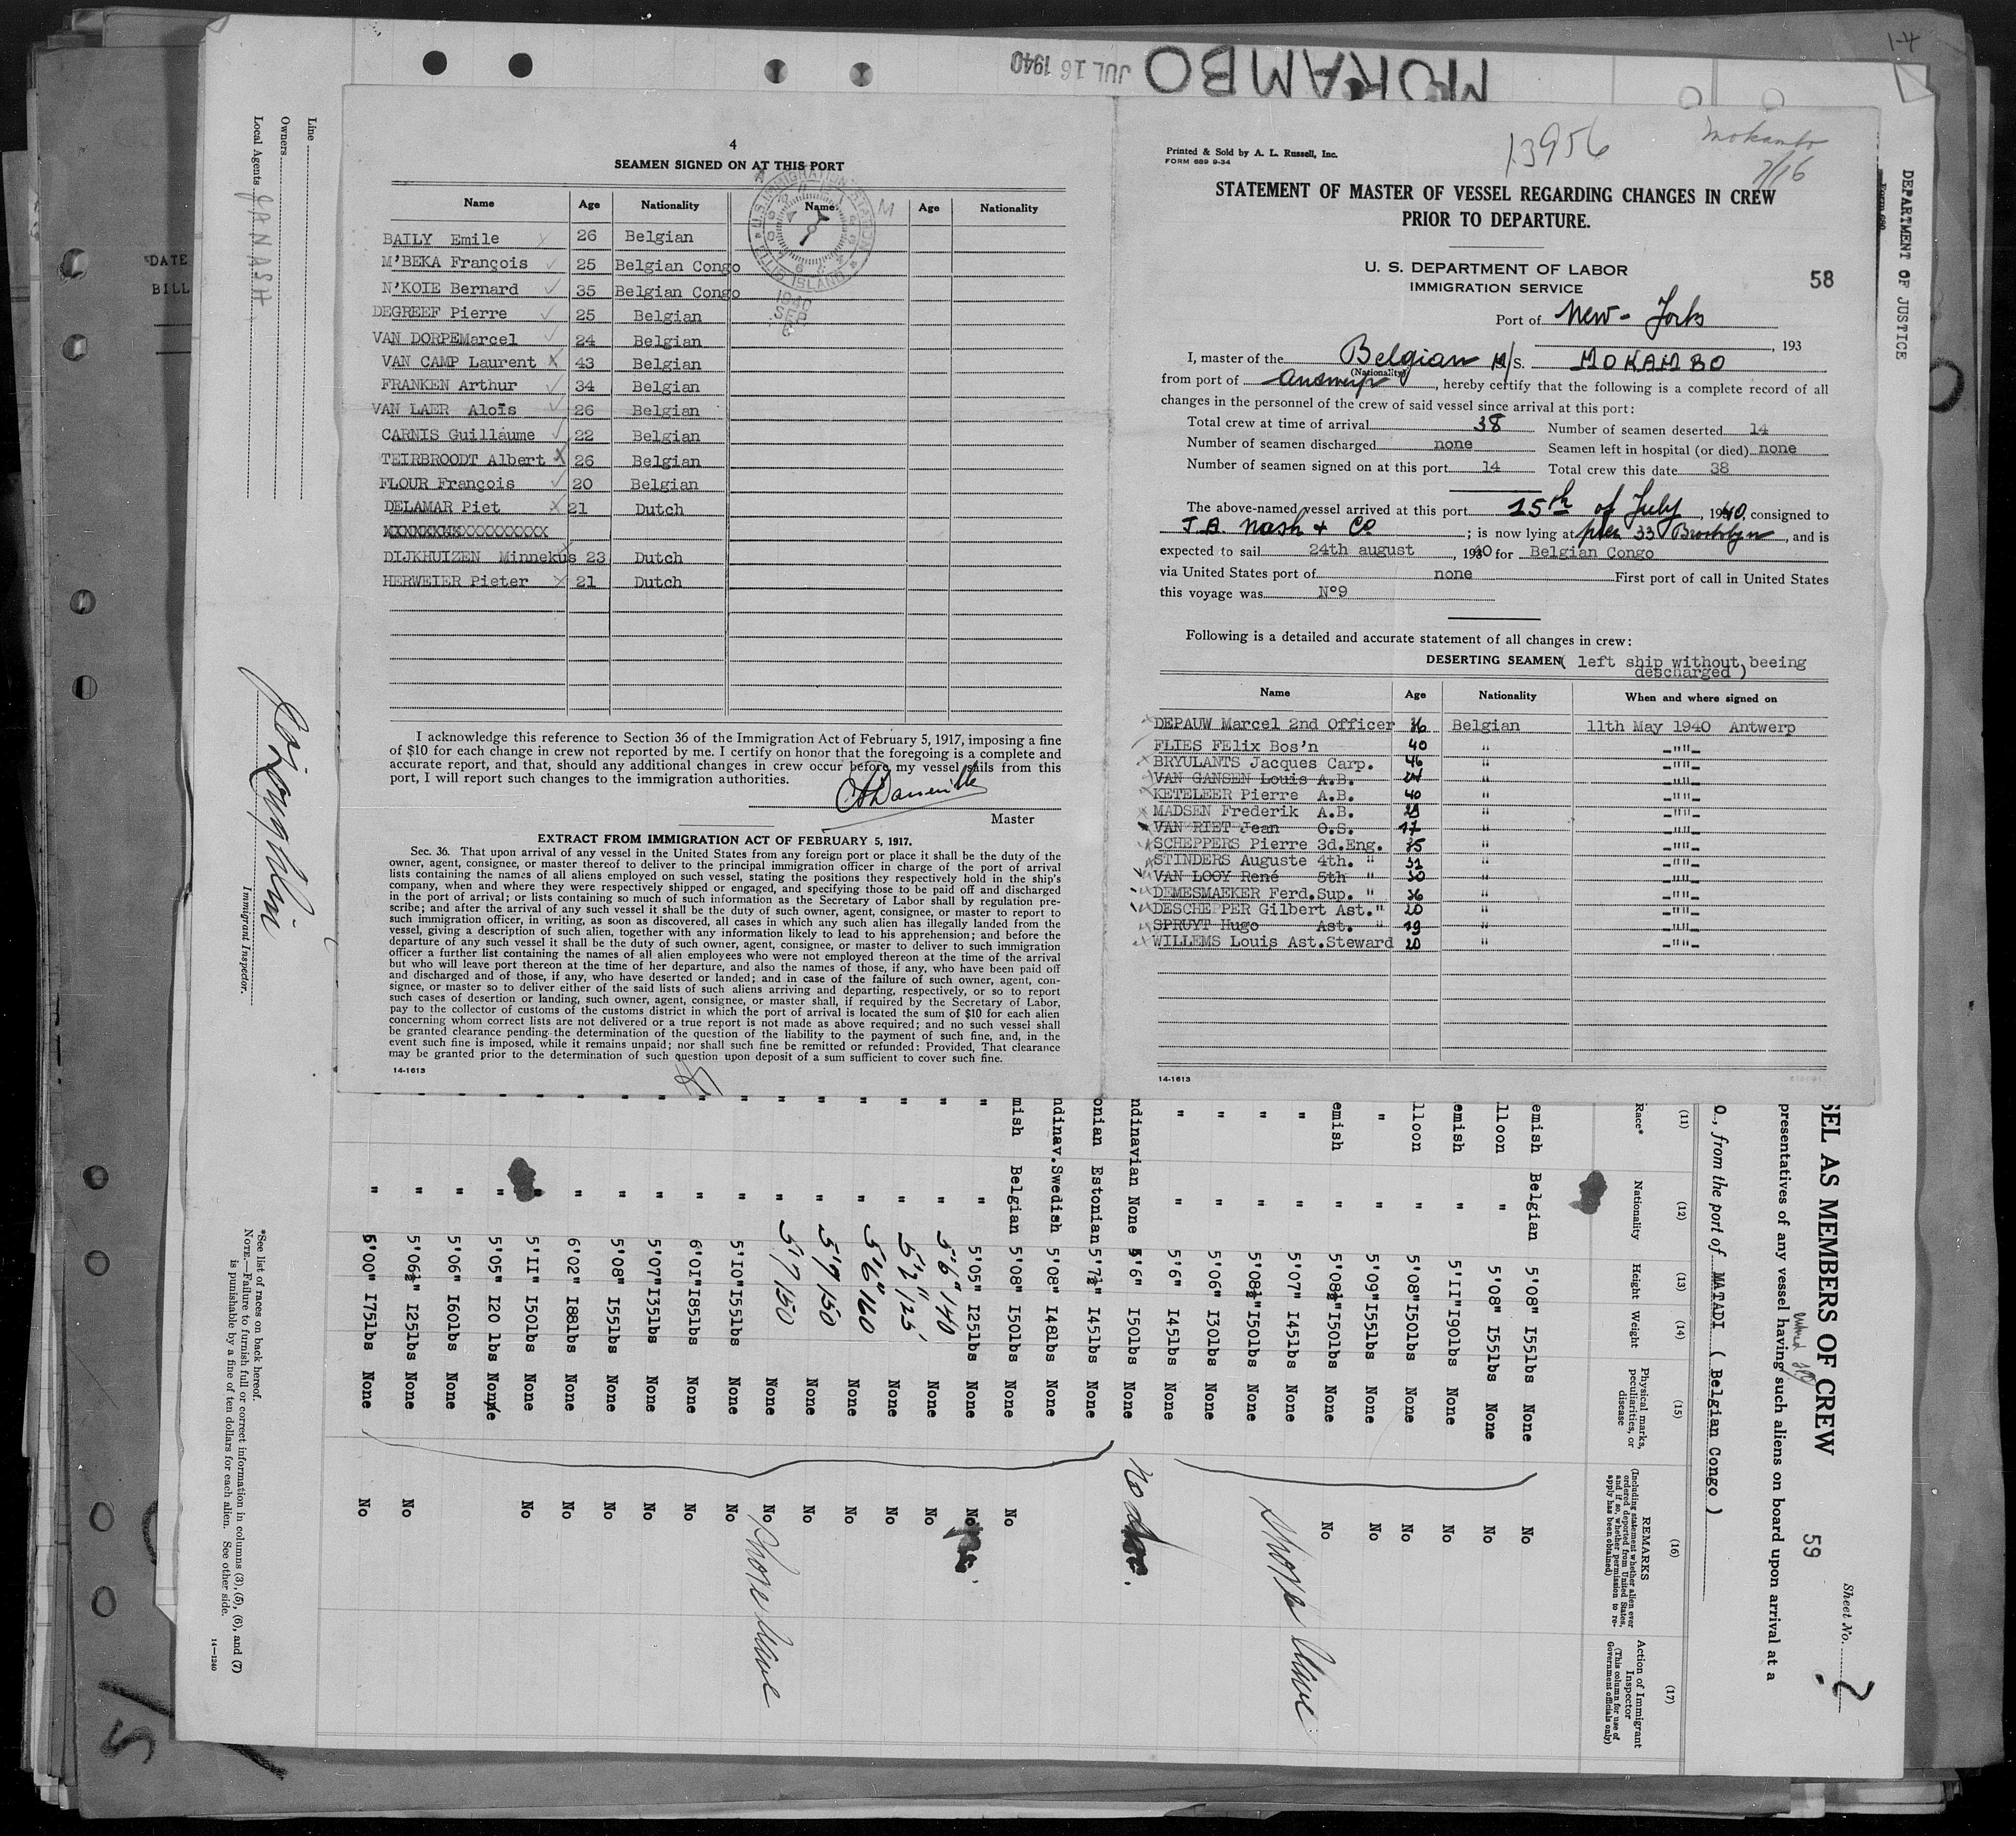 1-4
MOKAMBO
JUL 16 1940
DATE
BILL
Line
Owners
Local Agents JANASH
Immigrant Inspector.
4
SEAMEN SIGNED ON AT THIS PORT
Name Age Nationality Name Age Nationality
U.S. IMMIGRATION STATION
ELLIS ISLAND
1940
SEP
6
A M
BAILY Emile 26 Belgian
M'BEKA François 25 Belgian Congo
N'KOIE Bernard 35 Belgian Congo
DEGREEF Pierre 25 Belgian
VAN DORPEMarcel 24 Belgian
VAN CAMP Laurent 43 Belgian
FRANKEN Arthur 34 Belgian
VAN LAER Aloïs 26 Belgian
CARNIS Guillaume 22 Belgian
TEIRBROODT Albert 26 Belgian
FLOUR François 20 Belgian
DELAMAR Piet 21 Dutch
DIJKHUIZEN Minnekus 23 Dutch
HERWEIER Pieter 21 Dutch
I acknowledge this reference to Section 36 of the Immigration Act of February 5, 1917, imposing a fine
of $10 for each change in crew not reported by me. I certify on honor that the foregoing is a complete and
accurate report, and that, should any additional changes in crew occur before my vessel sails from this
port, I will report such changes to the immigration authorities.
Master
EXTRACT FROM IMMIGRATION ACT OF FEBRUARY 5, 1917.
Sec. 36. That upon arrival of any vessel in the United States from any foreign port or place it shall be the duty of the
owner, agent, consignee, or master thereof to deliver to the principal immigration officer in charge of the port of arrival
lists containing the names of all aliens employed on such vessel, stating the positions they respectively hold in the ship's
company, when and where they were respectively shipped or engaged, and specifying those to be paid off and discharged
in the port of arrival; or lists containing so much of such information as the Secretary of Labor shall by regulation pre-
scribe; and after the arrival of any such vessel it shall be the duty of such owner, agent, consignee, or master to report to
such immigration officer, in writing, as soon as discovered, all cases in which any such alien has illegally landed from the
vessel, giving a description of such alien, together with any information likely to lead to his apprehension; and before the
departure of any such vessel it shall be the duty of such owner, agent, consignee, or master to deliver to such immigration
officer a further list containing the names of all alien employees who were not employed thereon at the time of the arrival
but who will leave port thereon at the time of her departure, and also the names of those, if any, who have been paid off
and discharged and of those, if any, who have deserted or landed; and in case of the failure of such owner, agent, con-
signee, or master so to deliver either of the said lists of such aliens arriving and departing, respectively, or so to report
such cases of desertion or landing, such owner, agent, consignee, or master shall, if required by the Secretary of Labor,
pay to the collector of customs of the customs district in which the port of arrival is located the sum of $10 for each alien
concerning whom correct lists are not delivered or a true report is not made as above required; and no such vessel shall
be granted clearance pending the determination of the question of the liability to the payment of such fine, and, in the
event such fine is imposed, while it remains unpaid; nor shall such fine be remitted or refunded: Provided, That clearance
may be granted prior to the determination of such question upon deposit of a sum sufficient to cover such fine.
14-1613
Printed & Sold by A. L. Russell, Inc.
FORM 689 9-34
13956
Mokambo
7/16
STATEMENT OF MASTER OF VESSEL REGARDING CHANGES IN CREW
PRIOR TO DEPARTURE.
U. S. DEPARTMENT OF LABOR
IMMIGRATION SERVICE
58
Port of New-York
, 193
I, master of the Belgian M/S. MOKAMBO
(Nationality)
from port of Answerp, hereby certify that the following is a complete record of all
changes in the personnel of the crew of said vessel since arrival at this port:
Total crew at time of arrival 38 Number of seamen deserted 14
Number of seamen discharged none Seamen left in hospital (or died) none
Number of seamen signed on at this port 14 Total crew this date 38
The above-named vessel arrived at this port 15th of July, 1940, consigned to
J.A. Nash & Co; is now lying at pier 33 Brooklyn, and is
expected to sail 24th august, 1940 for Belgian Congo
via United States port of none First port of call in United States
this voyage was N°9
Following is a detailed and accurate statement of all changes in crew:
DESERTING SEAMEN( left ship without beeing
descharged )
Name Age Nationality When and where signed on
DEPAUW Marcel 2nd Officer 36 Belgian 11th May 1940 Antwerp
FLIES FElix Bos'n 40 " -""-
BRYULANTS Jacques Carp. 46 " -""-
VAN GANSEN Louis A.B. " -""-
KETELEER Pierre A.B. 40 " -""-
MADSEN Frederik A.B. " -""-
VAN RIET Jean O.S. 17 " -""-
SCHEPPERS Pierre 3d.Eng. " -""-
STINDERS Auguste 4th. " " -""-
VAN LOOY René 5th " " -""-
DEMESMAEKER Ferd.Sup. " 36 " -""-
DESCHEPPER Gilbert Ast." 20 " -""-
SPRUYT Hugo Ast. " 19 " -""-
WILLEMS Louis Ast.Steward 20 " -""-
14-1613
DEPARTMENT OF JUSTICE
Form 680
SEL AS MEMBERS OF CREW
Sheet No. 2
59
presentatives of any vessel having such aliens on board upon arrival at a
O., from the port of MATADI ( Belgian Congo )
(11) (12) (13) (14) (15) (16) (17)
Race* Nationality Height Weight Physical marks, peculiarities, or disease
REMARKS
(Including statement whether alien ever ordered deported from United States, and if so, whether permission to re-apply has been obtained)
Action of Immigrant Inspector
(This column for use of Government officials only)
emish Belgian 5'08" I55lbs None No
lloon " 5'08" I55lbs None No
emish " 5'II" I90lbs None No
lloon " 5'08" I50lbs None No
" " 5'09" I55lbs None No
emish " 5'08½" I50lbs None No
" " 5'07" I45lbs None
" " 5'08½" I50lbs None
" " 5'06" I30lbs None
" " 5'6" I45lbs None
Shore Leave
ndinavian None 5'6" I50lbs None
onian Estonian 5'7½" I45lbs None
ndinav. Swedish 5'08" I48lbs None
mish Belgian 5'08" I50lbs None No
" " 5'05" I25lbs None No
" " 5'6" 140 None No
" " 5'2" 125 None No
" " 5'6" 160 None No
" " 5'9 150 None No
" " 5'7 150 None No
" " 5'10" I55lbs None No
" " 6'0I" I85lbs None No
" " 5'07" I35lbs None No
" " 5'08" I55lbs None No
" " 6'02" I88lbs None No
" " 5'II" I50lbs None No
" " 5'05" I20 lbs None
" " 5'06" I60lbs None
" " 5'06½" I25lbs None No
" " 5'00" I75lbs None No
Shore Leave
*See list of races on back hereof.
NOTE.—Failure to furnish full or correct information in columns (3), (5), (6), and (7)
is punishable by a fine of ten dollars for each alien. See other side.
14—1240